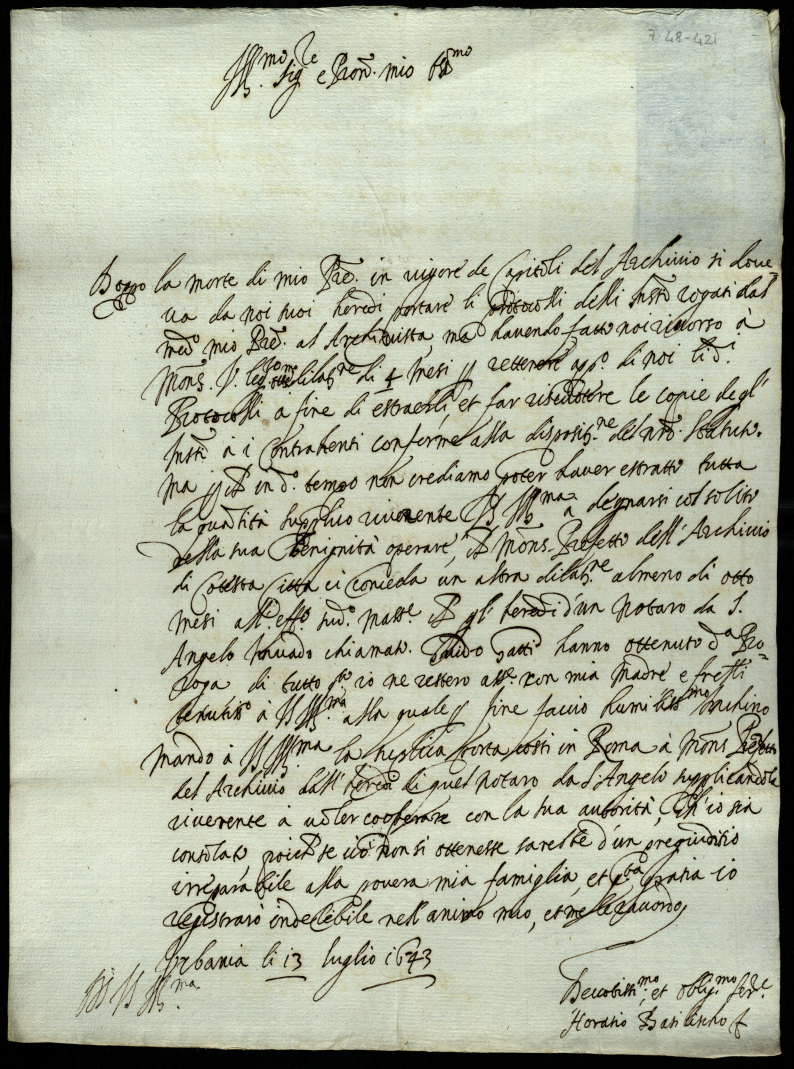 7 48-421
Ill.mo Sig.re e Pron. mio
Doppo la morte di mio Pre. in vigore de Capitoli del Archivio si dove-
va da noi suoi heredi portare li protocolli delli Instri rogati dal
med.o mio Pre. al Archivista, ma havendo fatto noi ricorso à
Mons. di 4 mesi ritenere app.o di noi li d.i
Protocolli a fine di estraerli, et far le copie degl'
Instri à i Contrahenti conforme alla disposit.ne del nro Statuto.
ma in d.o tempo non crediamo poter haver estratto tutta
la quantità supplico riverente VS Ill.ma a degnarsi col solito
della sua benignità operare, Mons. Prefetto dell'Archivio
di cotesta città ci conceda un altra dilat.ne almeno di otto
mesi all'eff.o sud.o gl'heredi d'un Notaro da S.
Angelo in Vado chiamato Guido Gatti hanno ottenuto d.a Pro-
roga di tutto io ne restero con mia Madre e frelli
tenutiss.o à VS Ill.ma alla quale fine faccio humilissimo inchino
mando à VS Ill.ma la replica costi in Roma à Mons. Prefetto
del Archivio dall' di quel Notaro da S. Angelo supplicandola
riverente à voler cooperare con la sua autorità, ch'io sia
consolato, poiche se ciò non si ottenesse sarebbe d'un pregiuditio
irreparabile alla povera mia famiglia, et gratia io
registrarò indelebile nell'animo mio, et me le ricordo
Urbania li 13 luglio 1643
VS Ill.ma
Devotiss.mo et oblig.mo Ser.re
Horatio Basilischo